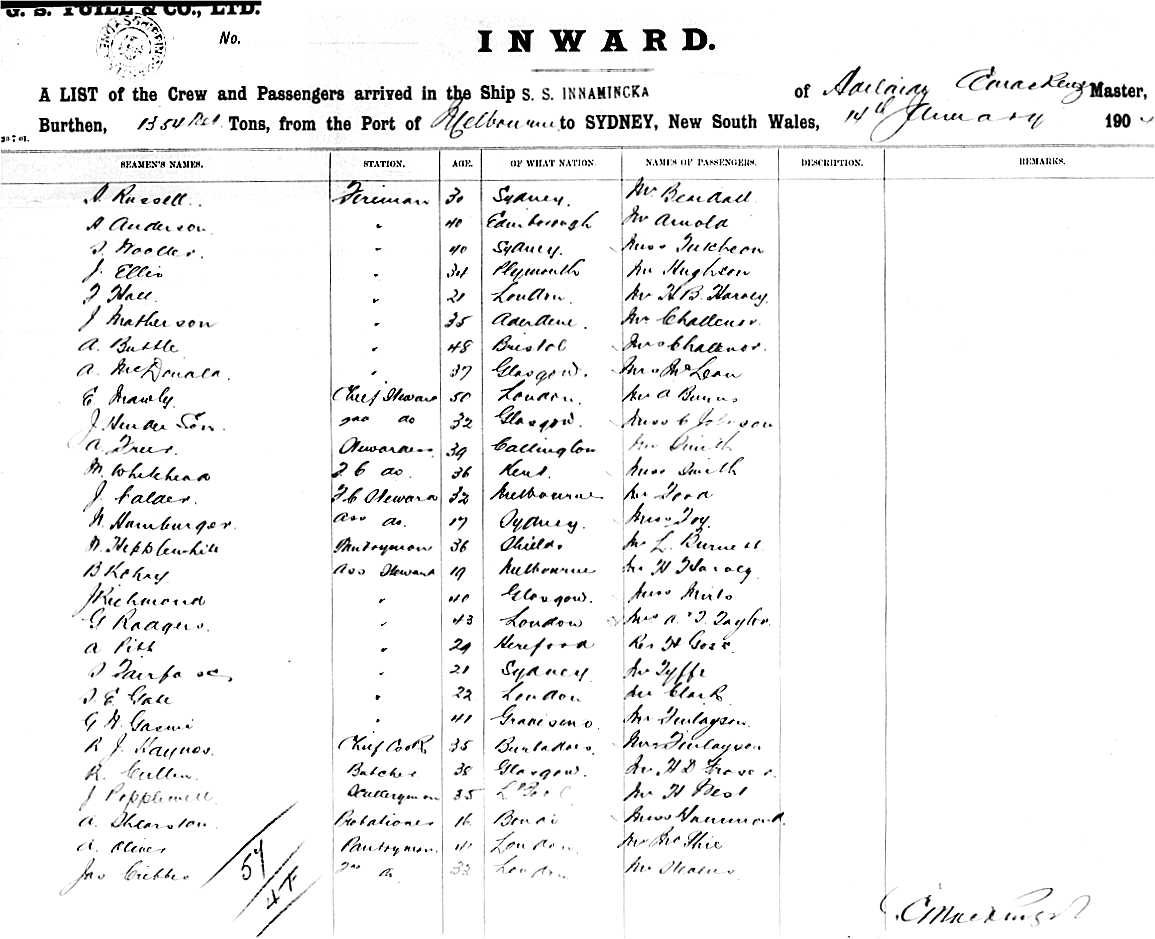 G. S. YUILL & CO., LTD.
No.
INWARD.
A LIST of the Crew and Passengers arrived in the Ship S. S. INNAMINCKA of Adelaide C Mackenzie Master,
Burthen, 1354 Tons, from the Port of Melbourne to SYDNEY, New South Wales, 14th January 190
SEAMEN'S NAMES. STATION. AGE. OF WHAT NATION. NAMES OF PASSENGERS. DESCRIPTION. REMARKS.
A. Russell. Fireman 30 Sydney. Mr Bendall
A Anderson. " 40 Edinborough Mr Arnold
" 40 Sydney. Miss Tutcheon
J. Ellis " 34 Plymouth Mr Hughson
F Hall. " 21 London. Mr H. B. Harvey.
J Matherson " 35 Aberdene. Mr Challenor.
A. Buttle " 48 Bristol Mrs Challenor.
A. McDonald. " 37 Glasgow. Mrs McLean
E Mawly. Chief Steward 50 London. Mr A Burns
J. Hender Son. 2nd do 32 Glasgow. Miss C Johnson
A. Stewardess 39 Callington Mr Smith
M. Whitehead F. C do. 36 Kent. Miss Smith
J. Calder. F. C Steward 32 Melbourne Mr Todd
N. Hamburger. Ass do. 17 Sydney. Miss Foy.
N. Hepplewhite Pantryman 36 Shields Mr L. Burnett
B Ass Steward 19 Melbourne Mr H Harvey
J Richmond " 40 Glasgow. Miss
G Rodgers. " 43 London Mrs A. T. Taylor
A Pitt " 29 Hereford Rev H Gosse.
Fairfax " 21 Sydney Mr Fyffe
E Gale " 22 London Mr Clark
G H " 41 Gravesend Mr Finlayson.
R J. Haynes. Chief Cook 35 Barbados. Mrs Finlayson
R. Cullen. Butcher 38 Glasgow. Mr H D Fraser.
J Popplewell Sculleryman 35 L'Pool Mr H West
A. Shearston. Probationer 16 Bondi Miss Hammond.
A. Oliver Pantryman. 41 London. Mr
Jas Cribbes 2nd do. 33 London
57
47
C Mackenzie